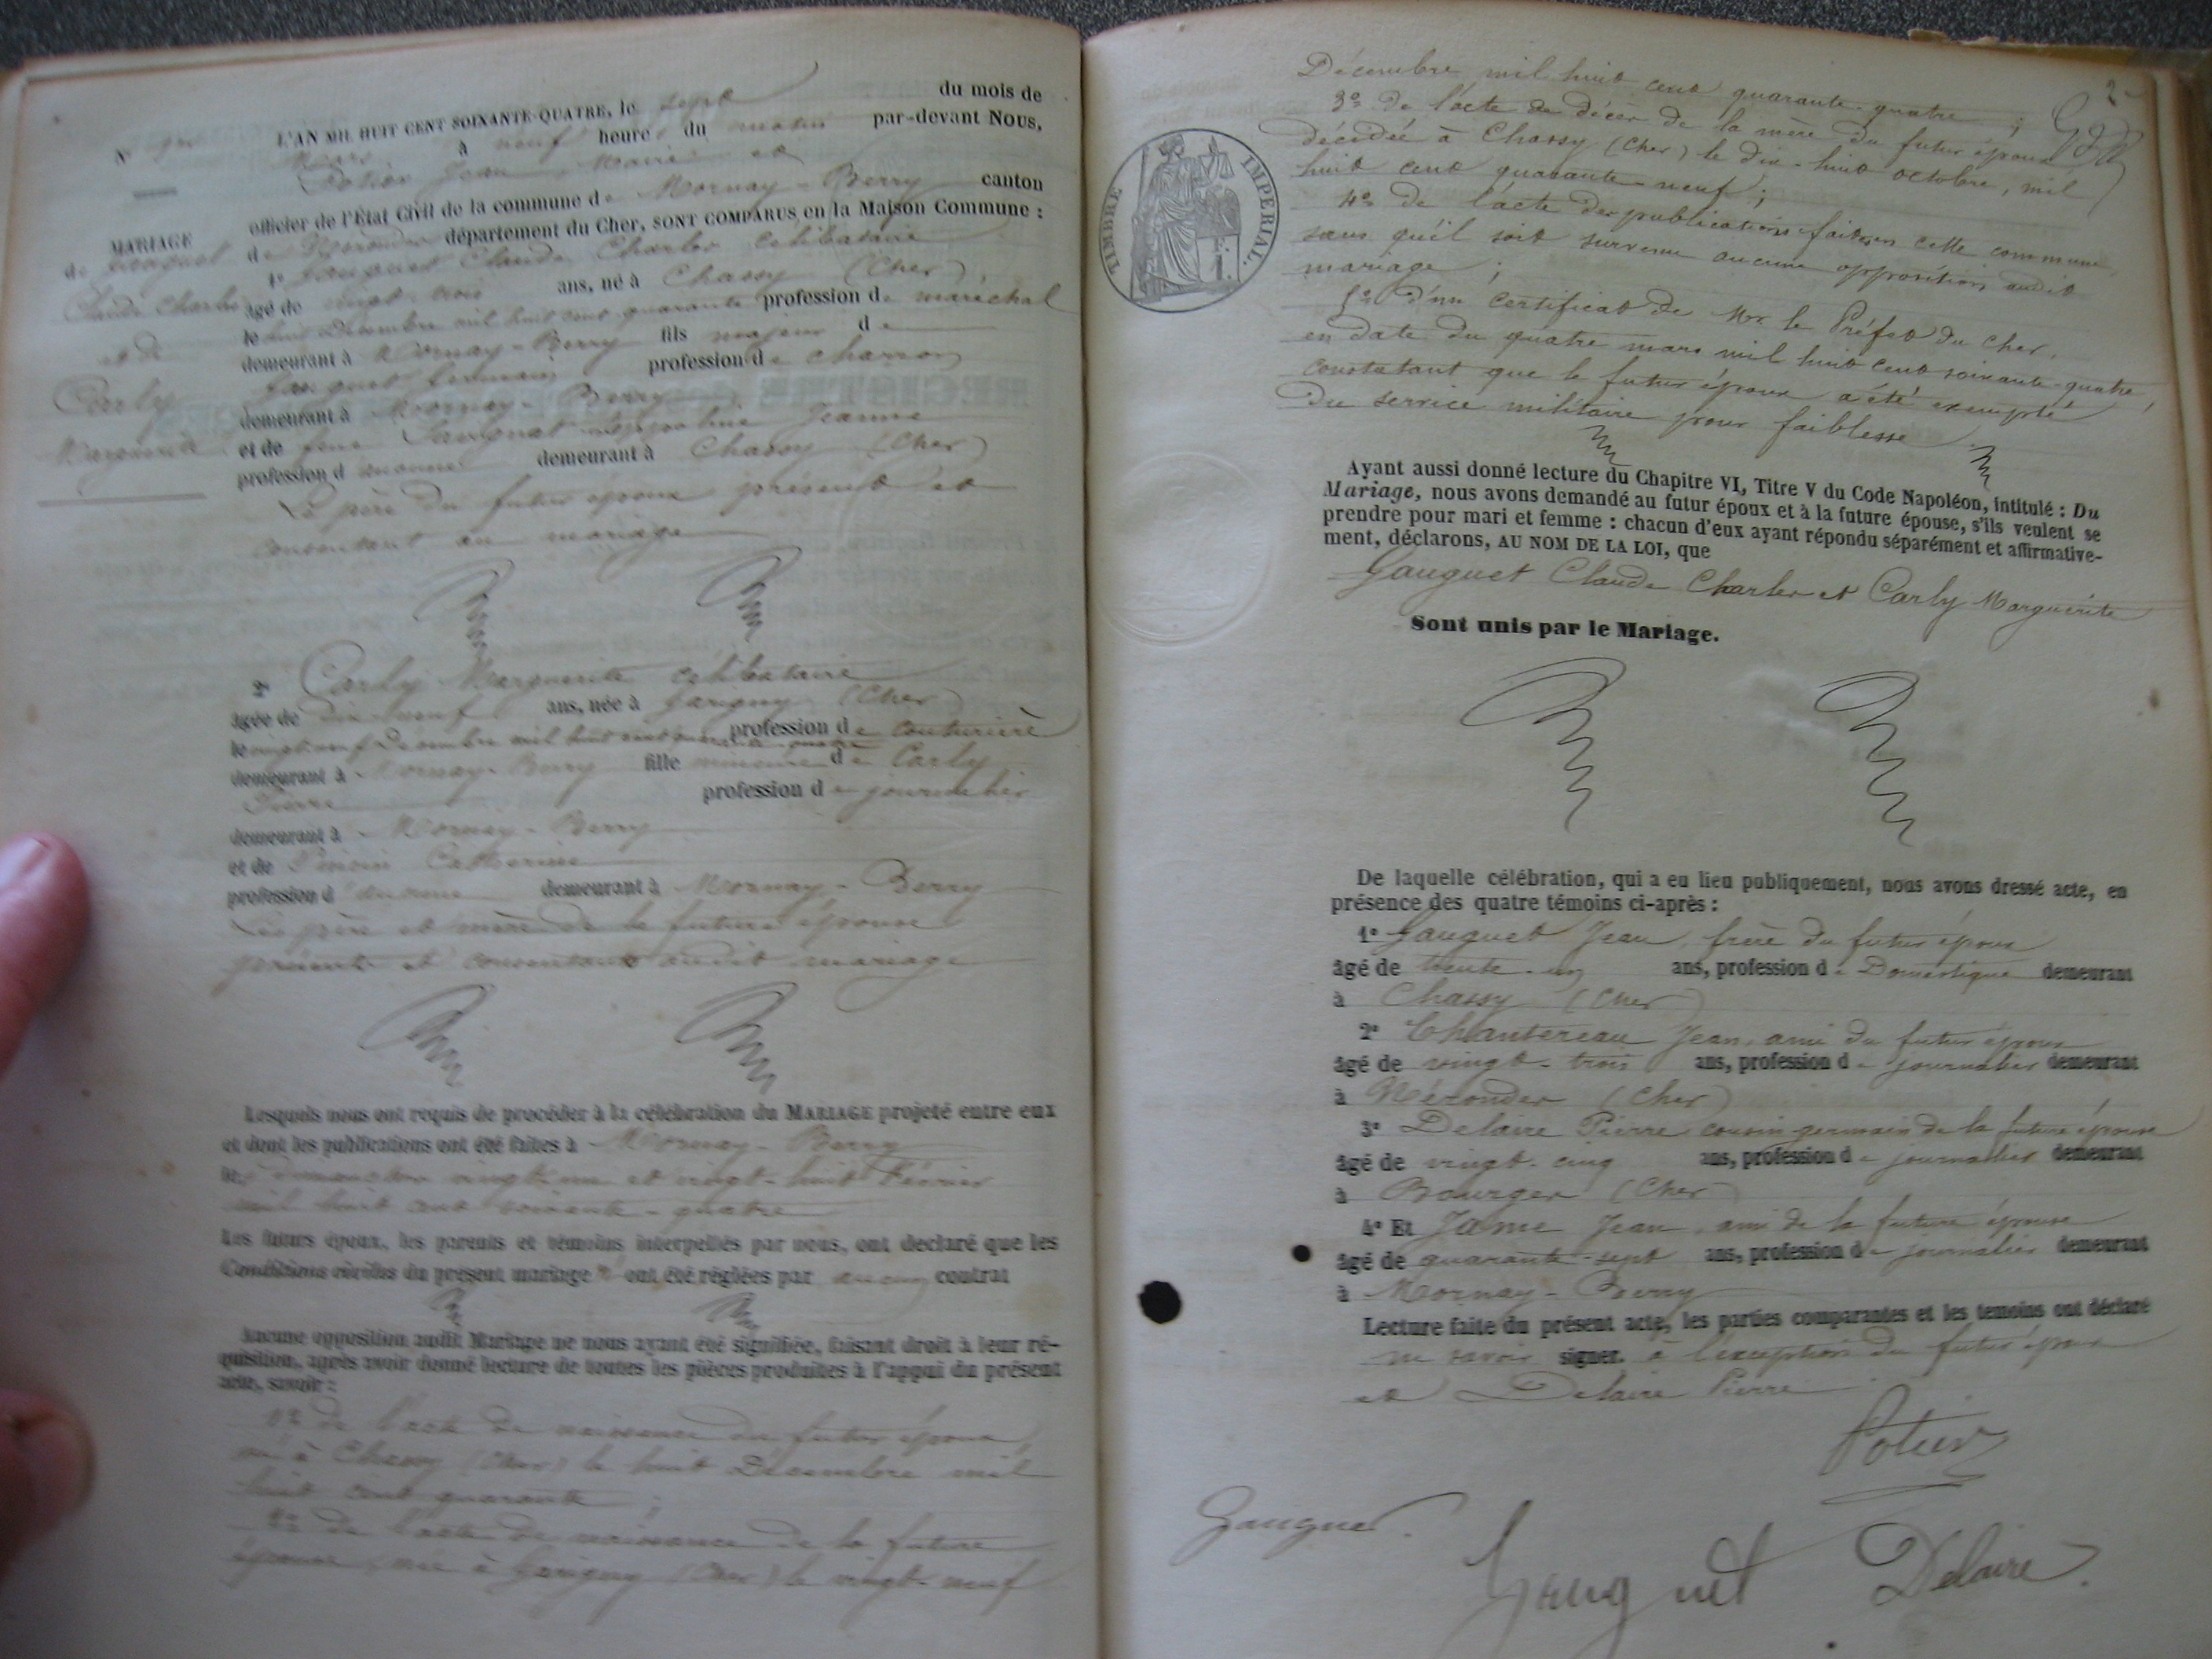 L'AN MIL HUIT CENT SOIXANTE-QUATRE, le sept du mois de
Mars à neuf heures du matin par-devant Nous,
Potier Jean, Maire et
officier de l'État Civil de la commune de Mornay-Berry canton
de Nérondes département du Cher, SONT COMPARUS en la Maison Commune :
N°
MARIAGE
de Gauguet
Claude Charles
et de
Carly
Marguerite
1° Gauguet Claude Charles célibataire
âgé de vingt-trois ans, né à Chassy (Cher)
le huit Décembre mil huit cent quarante profession de maréchal
demeurant à Mornay-Berry fils majeur de
Gauguet profession de charron
demeurant à Mornay-Berry
et de feue Jeanne
profession d demeurant à Chassy (Cher)
Le père du futur époux présent et
consentant au mariage
2° Carly Marguerite célibataire
âgée de dix-neuf ans, née à Garigny (Cher)
le vingt-neuf Décembre mil huit cent quarante-quatre profession de couturière
demeurant à Mornay-Berry fille mineure de Carly
Pierre profession de journalier
demeurant à Mornay-Berry
et de Catherine
profession d'aucune demeurant à Mornay-Berry
Les père et mère de la future épouse
présents et consentants audit mariage
Lesquels nous ont requis de procéder à la célébration du MARIAGE projeté entre eux
et dont les publications ont été faites à Mornay-Berry
les dimanches vingt-un et vingt-huit Février
mil huit cent soixante-quatre
Les futurs époux, les parents et témoins interpellés par nous, ont déclaré que les
Conditions civiles du présent mariage n' ont été réglées par aucun contrat
Aucune opposition audit Mariage ne nous ayant été signifiée, faisant droit à leur ré-
quisition, après avoir donné lecture de toutes les pièces produites à l'appui du présent
acte, savoir :
1° de l'acte de naissance du futur époux,
né à Chassy (Cher) le huit Décembre mil
huit cent quarante ;
2° de l'acte de naissance de la future
épouse, née à Garigny (Cher) le vingt-neuf
2
Décembre mil huit cent quarante-quatre ;
3° de l'acte de décès de la mère du futur époux
décédée à Chassy (Cher) le dix-huit octobre, mil
huit cent quarante-neuf ;
4° de l'acte des publications faites en cette commune,
sans qu'il soit survenu aucune opposition audit
mariage ;
5° d'un certificat de Mr. le Préfet du Cher,
en date du quatre mars mil huit cent soixante-quatre,
constatant que le futur époux a été exempté
du service militaire pour faiblesse
TIMBRE IMPERIAL.
Ayant aussi donné lecture du Chapitre VI, Titre V du Code Napoléon, intitulé : Du
Mariage, nous avons demandé au futur époux et à la future épouse, s'ils veulent se
prendre pour mari et femme : chacun d'eux ayant répondu séparément et affirmative-
ment, déclarons, AU NOM DE LA LOI, que
Gauguet Claude Charles et Carly Marguerite
Sont unis par le Mariage.
De laquelle célébration, qui a eu lieu publiquement, nous avons dressé acte, en
présence des quatre témoins ci-après :
1° Gauguet Jean, frère du futur époux
âgé de trente-un ans, profession de Domestique demeurant
à Chassy (Cher)
2° Chantereau Jean, ami du futur époux
âgé de vingt-trois ans, profession de journalier demeurant
à Nérondes (Cher)
3° Delaire Pierre cousin germain de la future épouse
âgé de vingt-cinq ans, profession de journalier demeurant
à Bourges (Cher)
4° Et Jame Jean, ami de la future épouse
âgé de quarante-sept ans, profession de journalier demeurant
à Mornay-Berry
Lecture faite du présent acte, les parties comparantes et les témoins ont déclaré
ne savoir signer. à l'exception du futur époux
et Delaire Pierre.
Potier
Gauguet.
Gauguet Delaire.